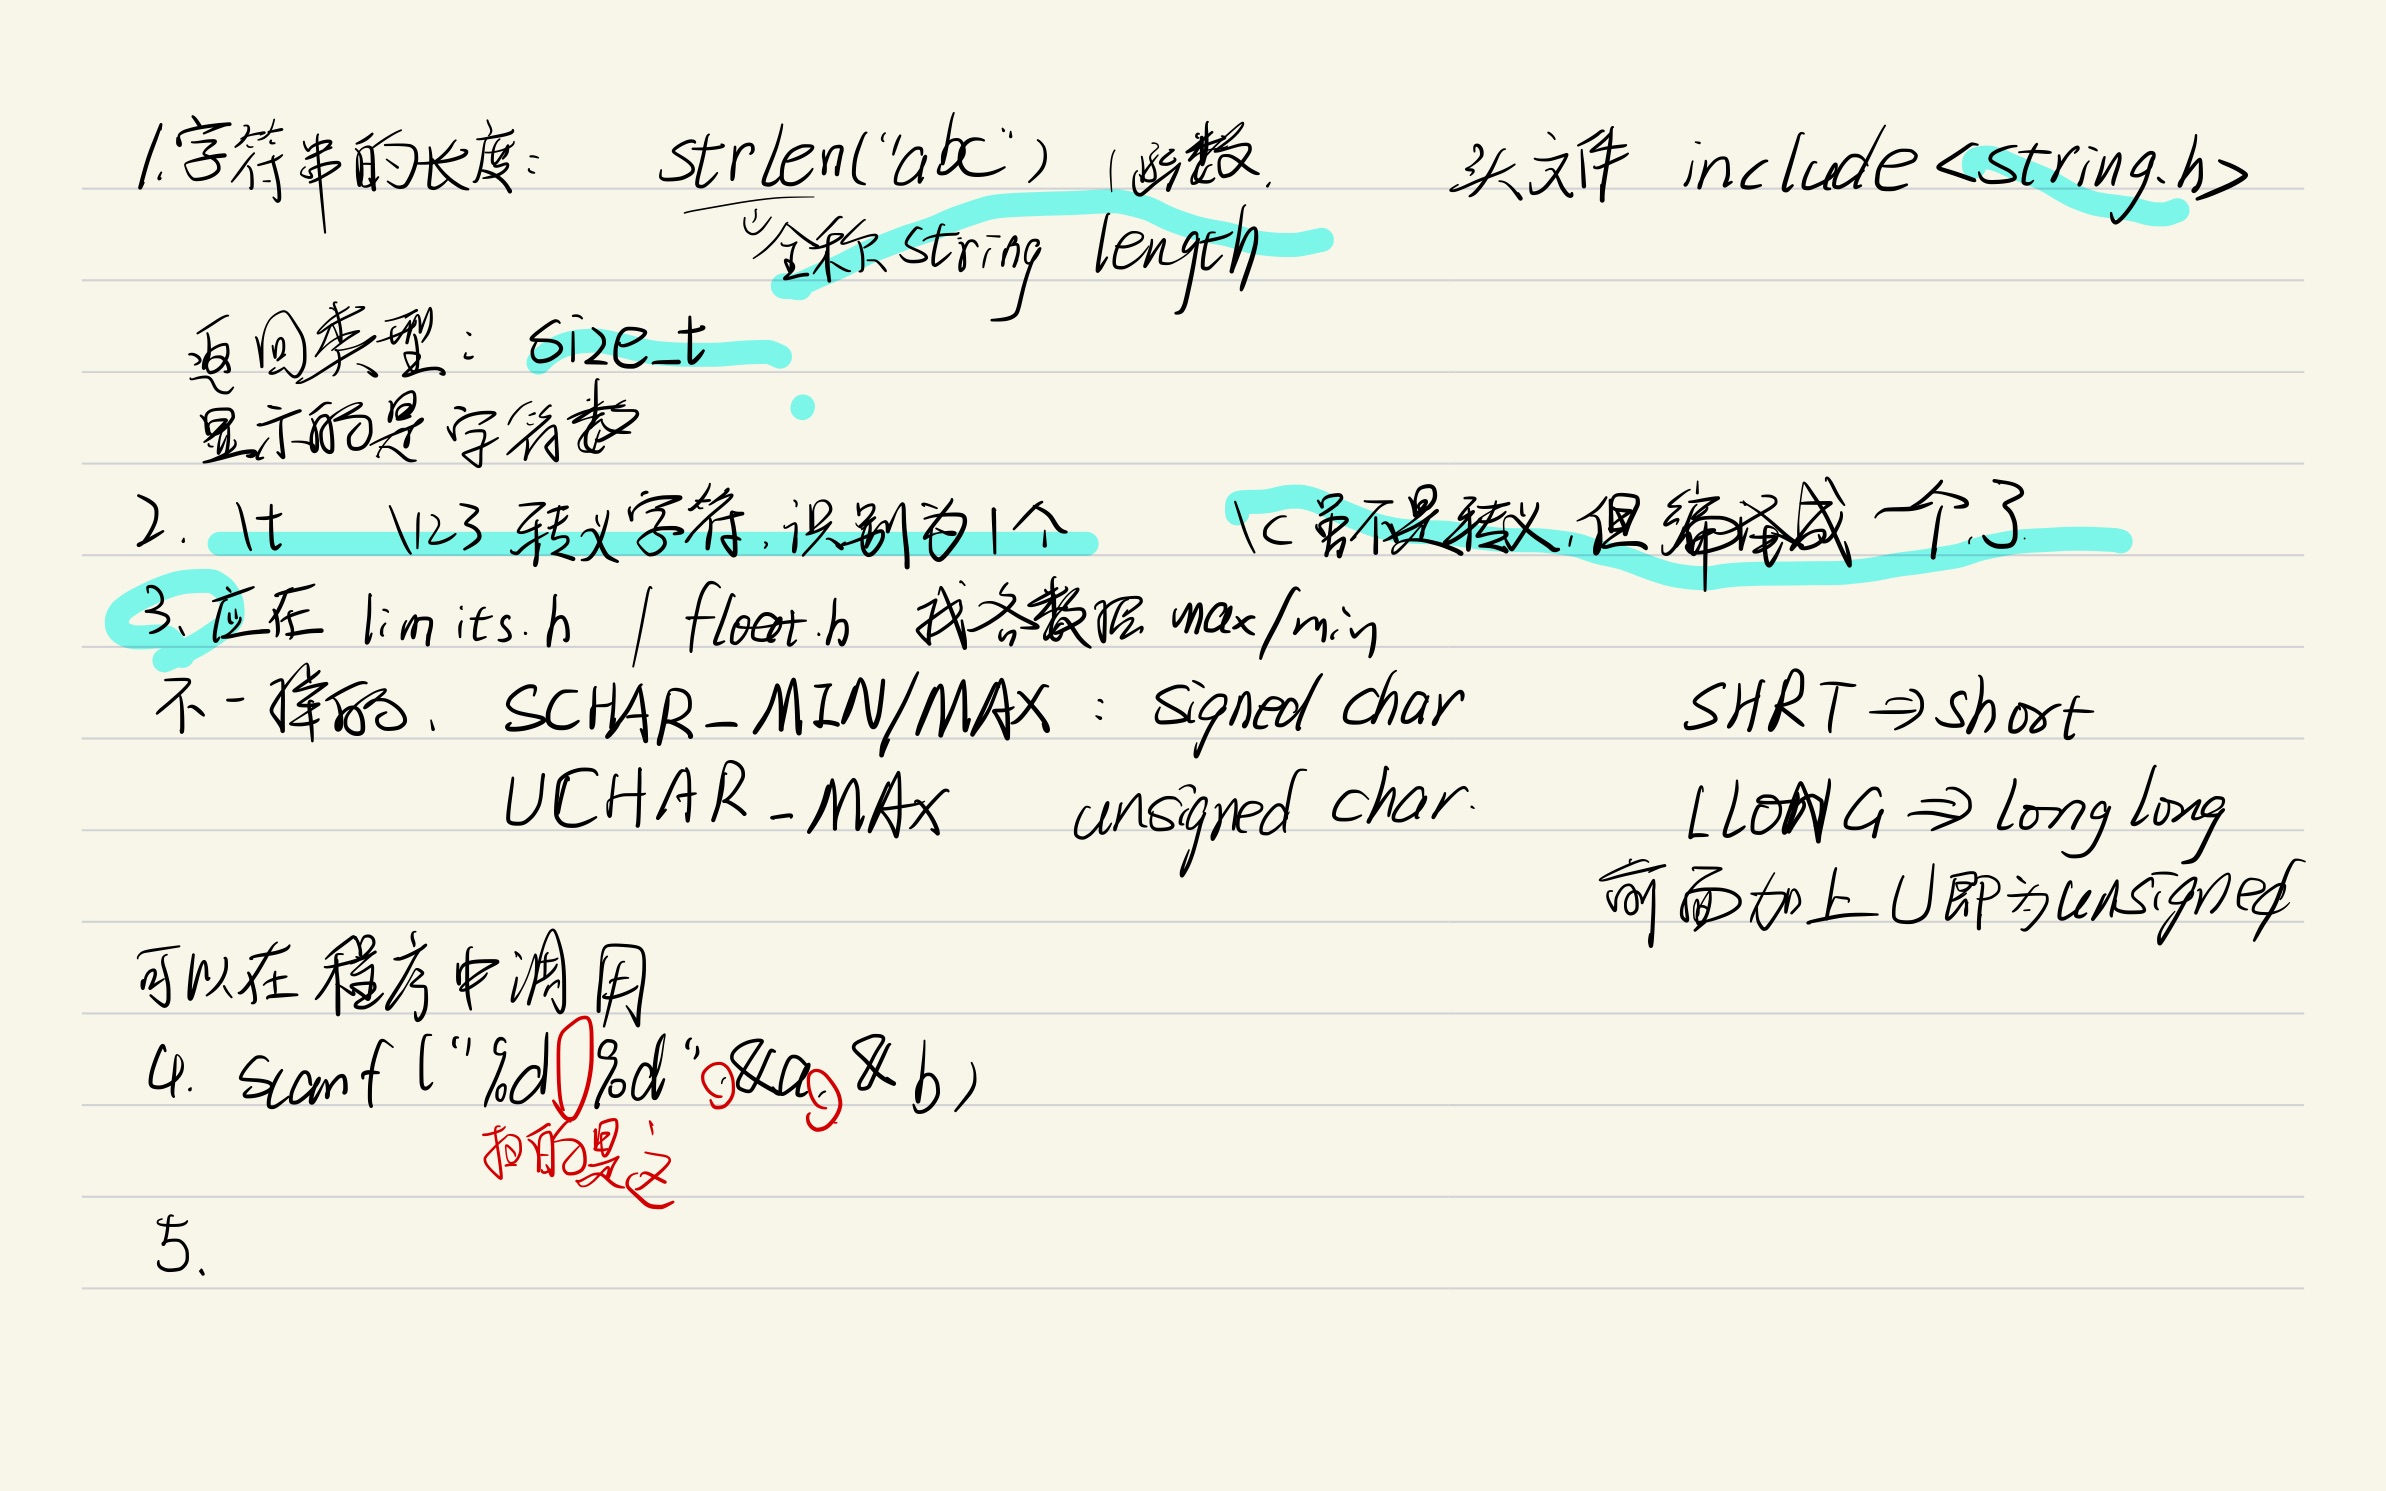 1.字符串的长度: strlen("abc") (函数. 头文件 include <string.h>
全称 string length
返回类型: size_t
显示的是字符数
2. \t \123 转义字符,识别为1个 \c 虽不是转义,但编译成一个了
3、应在 limits.h / float.h 找各数据 max/min
不一样的、 SCHAR_MIN/MAX : signed char SHRT ⇒ short
UCHAR_MAX unsigned char. LLONG ⇒ long long
前面加上U即为unsigned
可以在程序中调用
4. scanf("%d %d",&a,&b)
扣的是这
5.